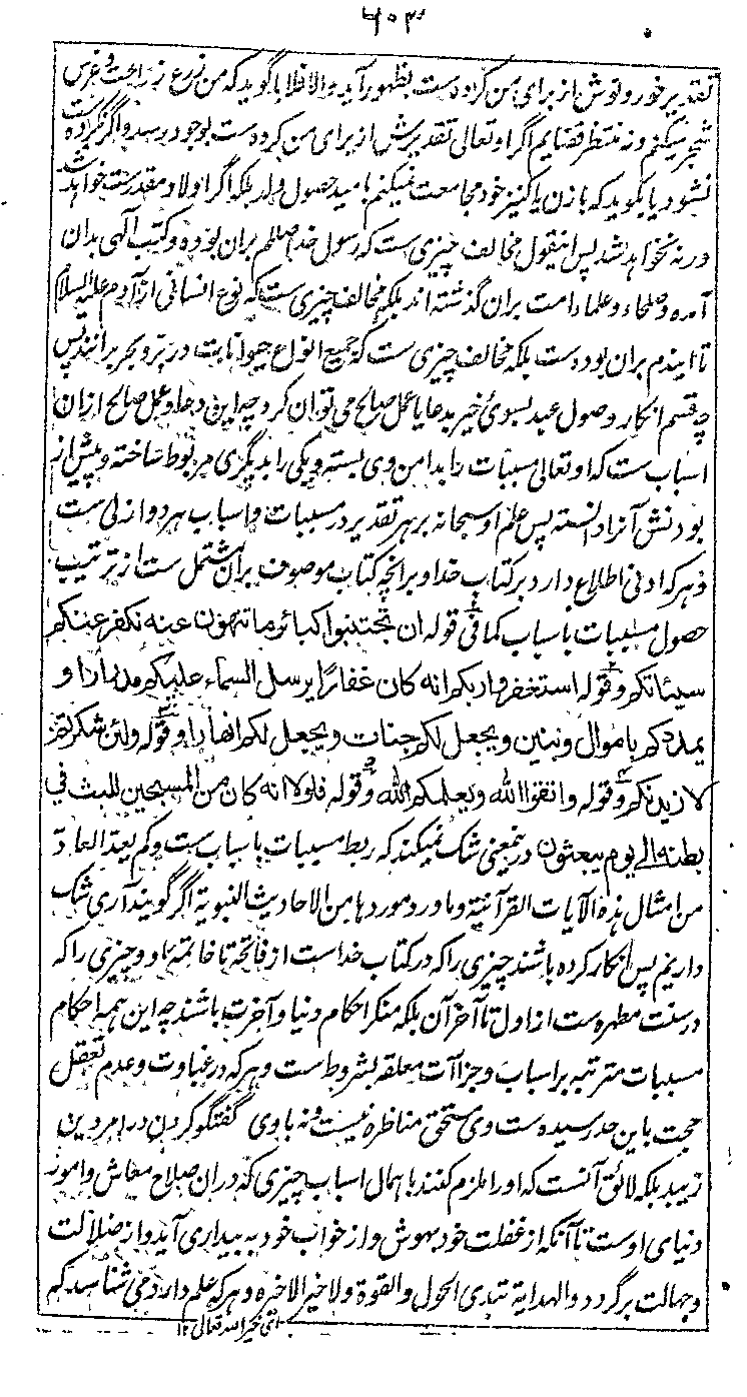 ۶۰۳
تقدیر خور و نوش از برای من کرده ست بظهور آید والا فلا یا گوید که من زرع زراعت و غرس
شجر نمیکنم و نه منتظر قضایم اگر او تعالی تقدیرش از برای من کرده ست بوجود رسد و اگر نکرده ست
نشود یا بگوید که بازن یا کنیز خود مجامعت نمیکنم بامید حصول ولد بلکه اگر اولاد مقدرست خواهد شد
ورنه نخواهد شد پس اینقول مخالف چیزی ست که رسول خدا صللم بران بوده و کتب الهی بدان
آمده و صلحاء و علماء امت بران گذشته اند بلکه مخالف چیزی ست که نوع انسانی از آدم علیه السلام
تا ایندم بران بوده ست بلکه مخالف چیزی ست که جمیع انواع حیوانات در بر و بحر برانند پس
چه قسم انکار وصول عبد بسوئ خیر بدعا یا عمل صالح می توان کرد چه این دعا و عمل صالح ازان
اسباب ست که او تعالی مسببات را بدامن وی بسته و یکی را بدیگری مربوط ساخته و پیش از
بودنش آنرا دانسته پس علم او سبحانه بر هر تقدیر در مسببات و اسباب هر دو ازلی ست
و هر که ادنی اطلاع دارد بر کتاب خدا و برانچه کتاب موصوف بران مشتمل ست از ترتیب
حصول مسببات باسباب کما فی قوله ان تجتنبوا کبائر ما تنهون عنه نکفر عنکم
سیئاتکم و قوله استغفروا ربکم انه کان غفارا یرسل السماء علیکم مدرارا و
یمددکم باموال و بنین و یجعل لکم جنات و یجعل لکم انهارا و قوله و لئن شکرتم
لازیدنکم و قوله و اتقوا الله و یعلمکم الله و قوله فلولا انه کان من المسبحین للبث فی
بطنه الی یوم یبعثون درینمعنی شک نمیکند که ربط مسببات باسباب ست و کم یعد العاد
من امثال هذه الآیات القرآنیة و ما ورد موردها من الاحادیث النبویة اگر گویند آری شک
داریم پس انکار کرده باشند چیزی را که در کتاب خداست از فاتحه تا خاتمه او و چیزی را که
در سنت مطهره ست از اول تا آخر آن بلکه منکر احکام دنیا و آخرت باشند چه این همه احکام
مسببات مترتبه بر اسباب و جزاآت معلقه بشروط ست و هر که در غباوت و عدم تعقل
حجت باین حد رسیده ست وی مستحق مناظره نیست و نه باوی گفتگو کردن در امر دین
زیبد بلکه لائق آنست که او را ملزم کنند باهمال اسباب چیزی که دران صلاح معاش و امور
دنیای اوست تا آنکه از غفلت خود بهوش و از خواب خود به بیداری آید و از ضلالت
و جهالت برگردد و الهدایة بیدی الحول و القوة و لا خیر الا خیره و هر که علم دارد می شناسد که